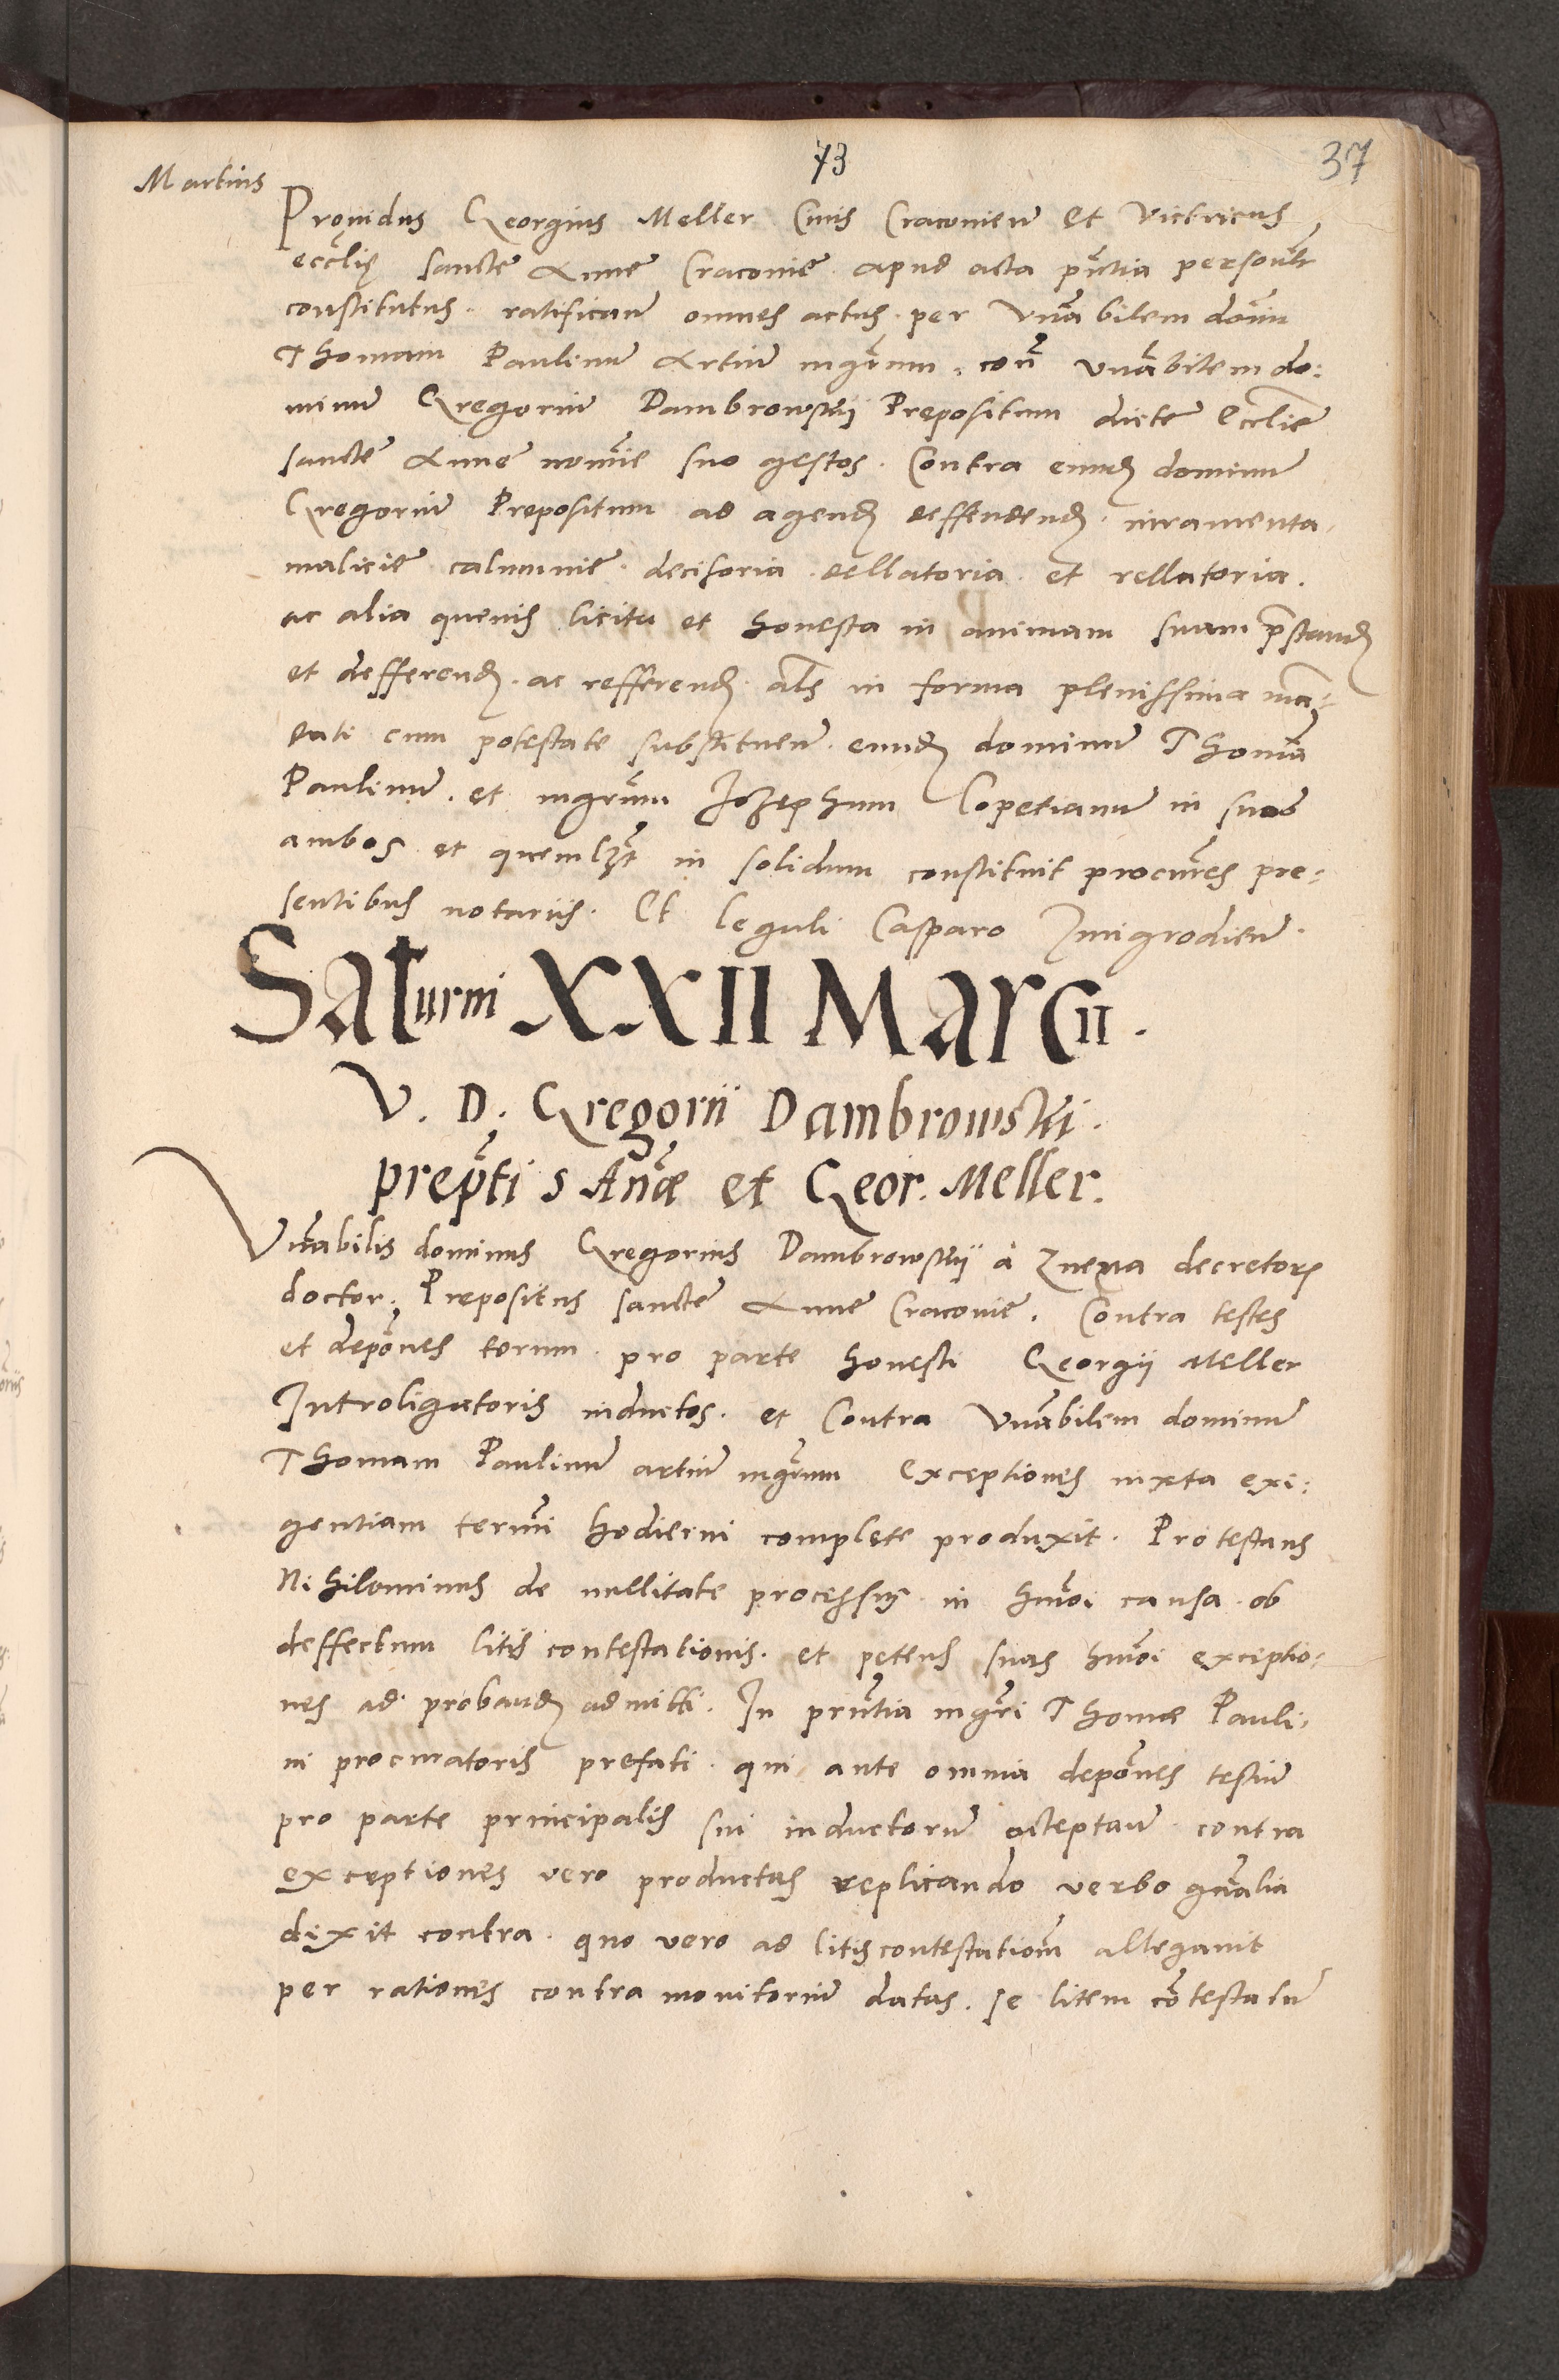 73
37
Martius
Prouidus Georgius Meller Ciuis Cracouien̄ et Victricus
eccl̃ię sanctę Annę Cracouię apud acta pñtia personal̃r
constitutus. ratificau̅ omnes actus per Vn̄abilem dom̄
Thomam Paulinu̅ Artiu̅ mgr̃um. con̄ vn̄abilem do:
minu̅ Gregoriu̅ Dambrowskij Prepositum dictę Eccl̃ię
sanctę Annę nom̃ie suo gestos. Contra eund̨ dominu̅
Gregoriu̅ Prepositum ad agend̨ deffendend̨ iuramenta
malicię calumnię decisoria dellatoria et rellatoria.
ac alia queuis licita et honesta in animam suam p̄stand̨
et defferend̨. ac refferend̨. al̃s in forma plenissima mā:
dati cum potestate substituen̄. eund̨ dominu̅ Thomā
Paulinu̅. et mgr̃um Josephum Copetianu̅ in suos
ambos et queml̃zt in solidum constituit procur̃es pre:
sentibus notariis. Et leguli Casparo Zmigrodien̄.
Saturni XXII Marcii.
V. D. Gregorii Dambrowskii.
prep̃ti S Añæ et Geor. Meller.
Vn̄abilis dominus Gregorius Dambrowskij à Znena decretor̨
doctor. Prepositus sanctę Annę Cracouię. Contra testes
et depōnes eorum pro parte honesti Georgij Meller
Introligatoris inductos. et Contra Vn̄abilem dominu̅
Thomam Paulinu̅ artiu̅ mgr̃um exceptiones iuxta exi:
gentiam term̃i hodierni complete produxit. Protestans
Nihilominus de nullitate processus in hm̃oi causa ob
deffectum litis contestationis. et petens suas hm̃oi exceptio:
nes ad proband̨ admitti. In prñtia mgr̃i Thomæ Pauli:
ni procuratoris prefati. qui ante omnia depōnes testiu̅
pro parte principalis sui inductoru̅ acceptau̅ contra
exceptiones vero productas replicando verbo gn̄alia
dixit contra. quo vero ad litiscontestatiom̄ allegauit
per rationes contra monitoriu̅ datas. se litem cōtestatu̅